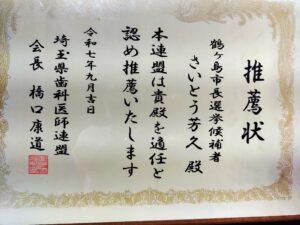 推薦状
鶴ヶ島市長選挙候補者
さいとう芳久殿
本連盟は貴殿を適任と
認め推薦いたします
令和七年九月吉日
埼玉県歯科医師連盟
会長 橋口康道